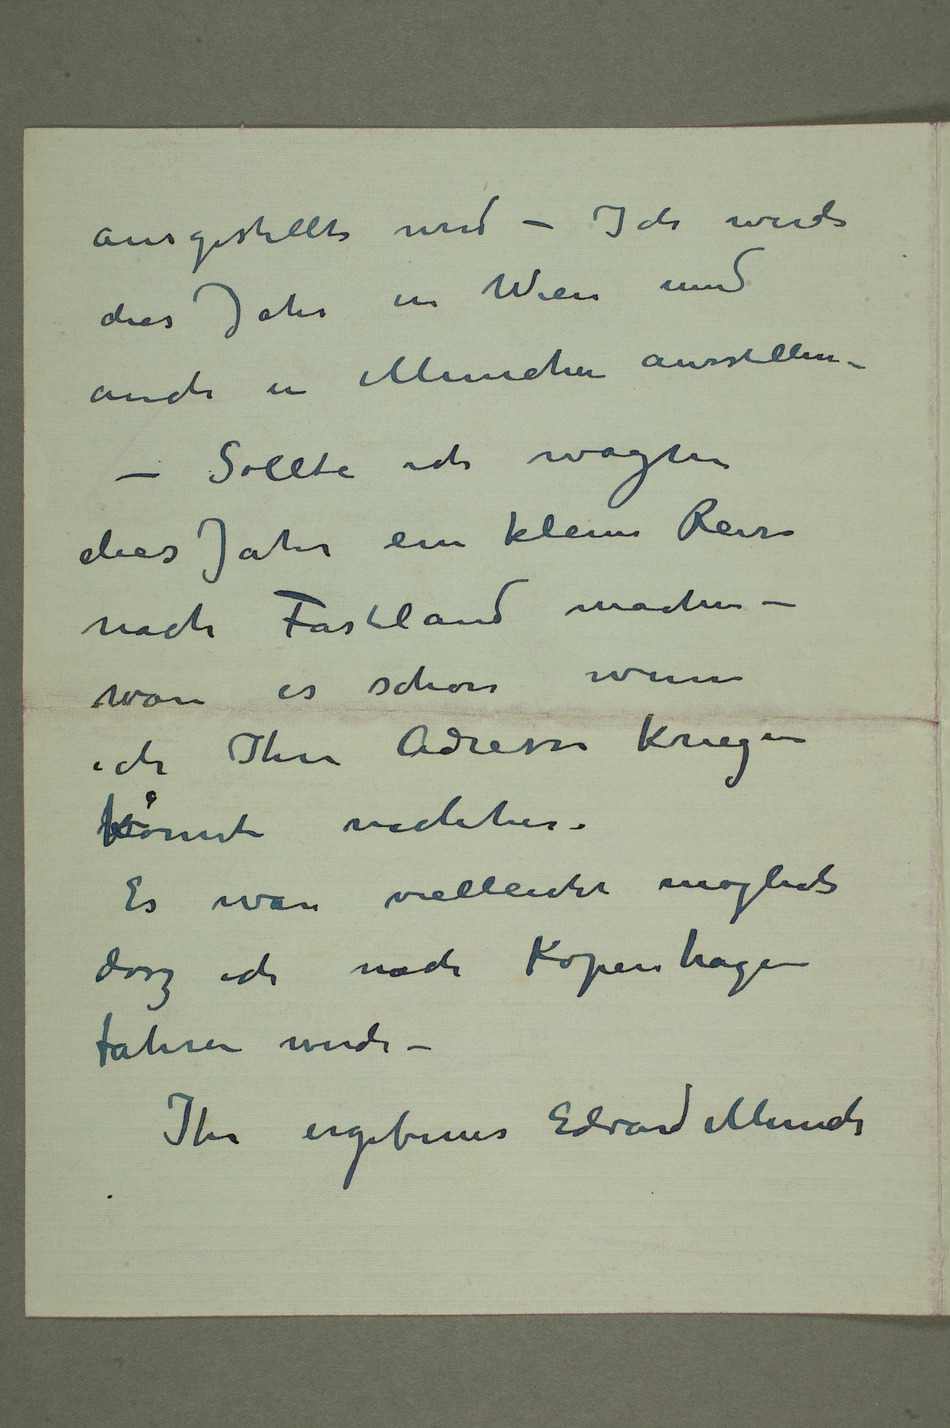 ausgestellt wird – Ich werde
dies Jahr in Wien und
auch in Munchen ausstellen –
– Sollte ich wagen
dies Jahr ein kleine Reise
nach Fastland machen –
war es schon wenn
ich Ihre Adresse kriegen
könnte
Es war vielleicht moglich
dasz ich nach Kopenhagen
fahren werde –
Ihr ergebener Edvard Munch